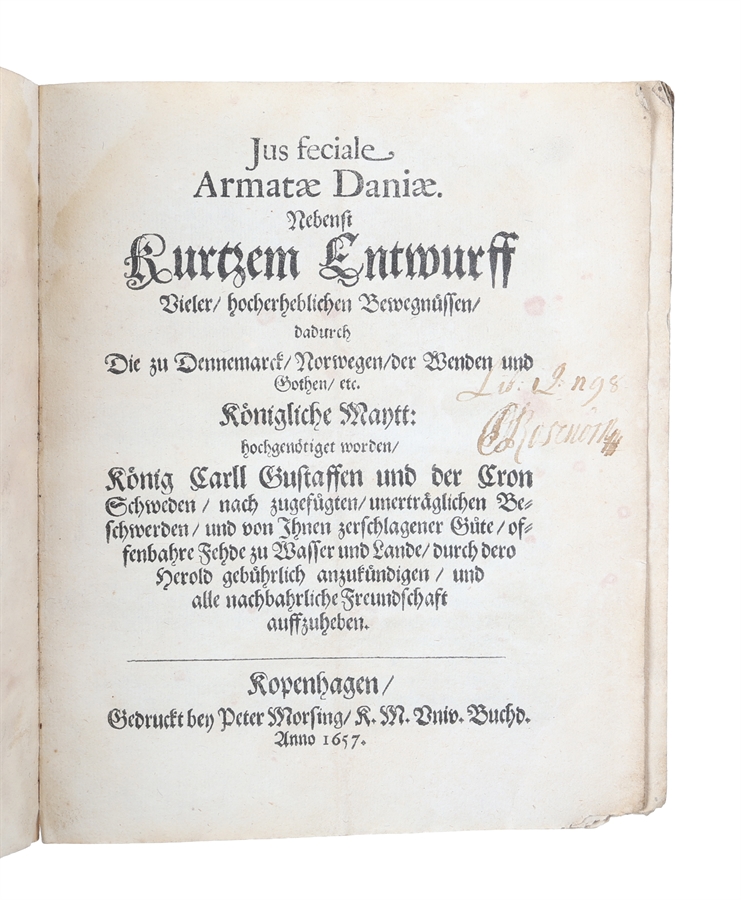 Jus feciale
Armatæ Daniæ.
Nebenst
Kurtzem Entwurff
Vieler/ hocherheblichen Bewegnüssen/
dadurch
Die zu Dennemarck/ Norwegen/ der Wenden und
Gothen/ etc.
Königliche Maytt:
hochgenötiget worden/
König Carll Gustaffen und der Cron
Schweden/ nach zugefügten/ unerträglichen Be-
schwerden/ und von Ihnen zerschlagener Güte/ of-
fenbahre Fehde zu Wasser und Lande/ durch dero
Herold gebührlich anzukündigen/ und
alle nachbahrliche Freundschaft
auffzuheben.
Kopenhagen/
Gedruckt bey Peter Morsing/ K. M. Univ. Buchd.
Anno 1657.
Rosenörn